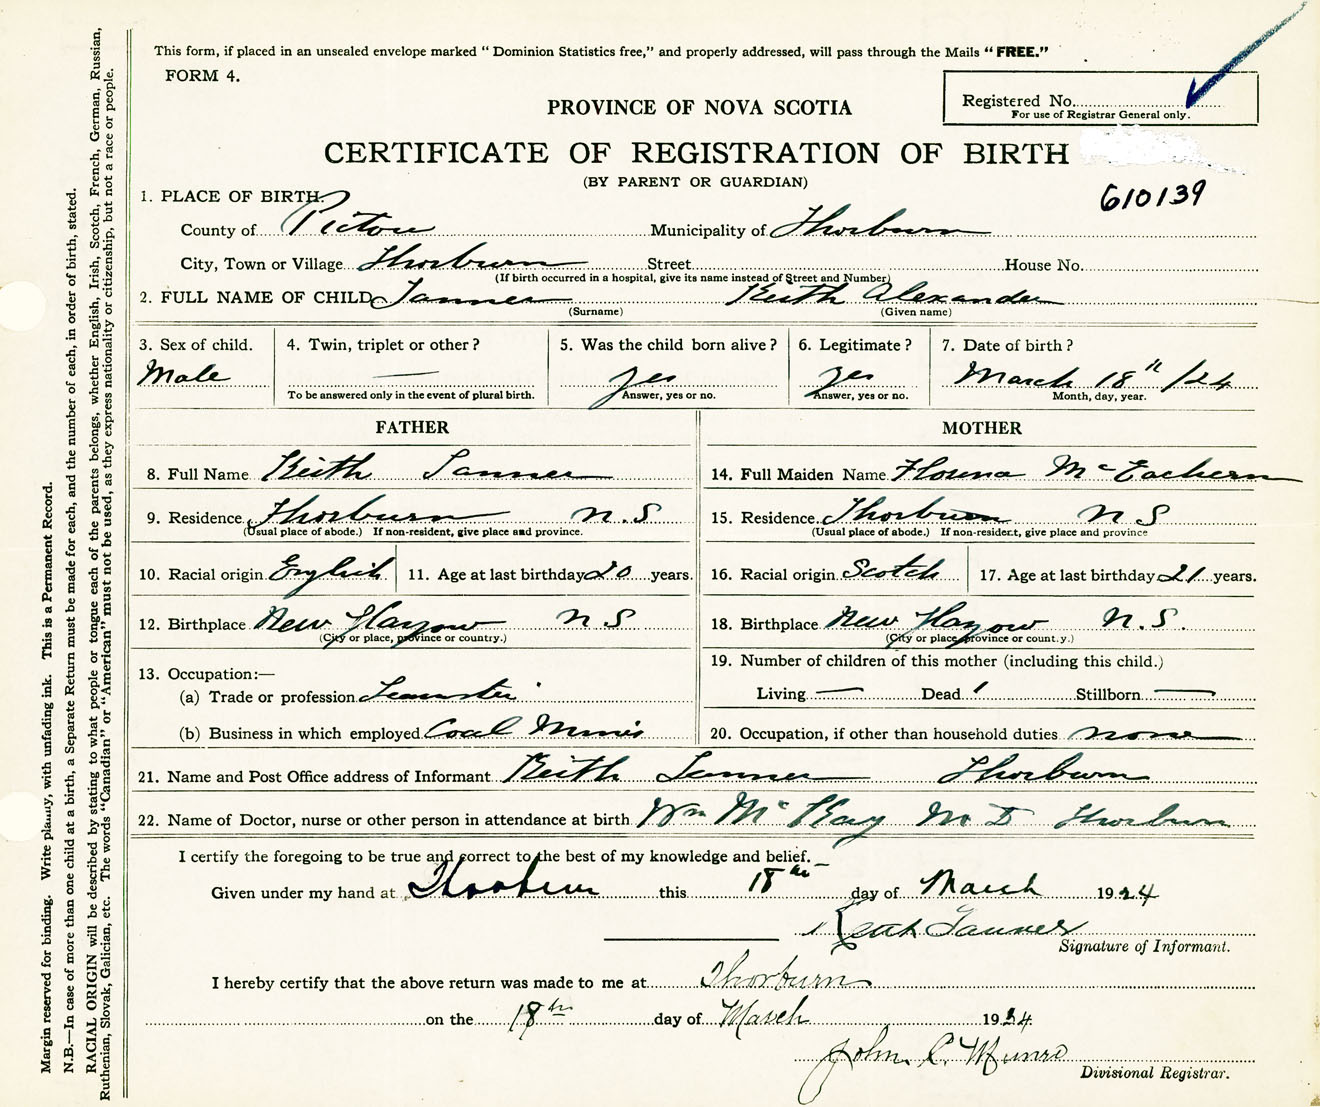 This form, if placed in an unsealed envelope marked "Dominion Statistics free," and properly addressed, will pass through the Mails "FREE."
FORM 4.
Registered No.
For use of Registrar General only.
PROVINCE OF NOVA SCOTIA
CERTIFICATE OF REGISTRATION OF BIRTH
(BY PARENT OR GUARDIAN)
610139
1. PLACE OF BIRTH.
County of Pictou Municipality of Thorburn
City, Town or Village Thorburn Street House No.
(If birth occurred in a hospital, give its name instead of Street and Number)
2. FULL NAME OF CHILD Tanner Keith Alexander
(Surname) (Given name)
3. Sex of child. 4. Twin, triplet or other? 5. Was the child born alive? 6. Legitimate? 7. Date of birth?
Male — yes yes March 18" /24
To be answered only in the event of plural birth. Answer, yes or no. Answer, yes or no. Month, day, year.
FATHER MOTHER
8. Full Name Keith Tanner 14. Full Maiden Name Florena McEachern
9. Residence Thorburn N.S 15. Residence Thorburn N S
(Usual place of abode.) If non-resident, give place and province. (Usual place of abode.) If non-resident, give place and province
10. Racial origin English 11. Age at last birthday 20 years. 16. Racial origin Scotch 17. Age at last birthday 21 years.
12. Birthplace New Glasgow N S 18. Birthplace New Glasgow N.S.
(City or place, province or country.) (City or place province or count.y.)
13. Occupation:— 19. Number of children of this mother (including this child.)
(a) Trade or profession Teamster Living — Dead 1 Stillborn —
(b) Business in which employed Coal Mines 20. Occupation, if other than household duties none
21. Name and Post Office address of Informant Keith Tanner Thorburn
22. Name of Doctor, nurse or other person in attendance at birth Wm McKay M D Thorburn
I certify the foregoing to be true and correct to the best of my knowledge and belief.
Given under my hand at Thorburn this 18th day of March 1924
Keith Tanner
Signature of Informant.
I hereby certify that the above return was made to me at Thorburn
on the 18th day of March 1924
John C. Munro
Divisional Registrar.
Margin reserved for binding. Write plainly, with unfading ink. This is a Permanent Record.
N.B.—In case of more than one child at a birth, a Separate Return must be made for each, and the number of each, in order of birth, stated.
RACIAL ORIGIN will be described by stating to what people or tongue each of the parents belongs, whether English, Irish, Scotch, French, German, Russian,
Ruthenian, Slovak, Galician, etc. The words "Canadian" or "American" must not be used, as they express nationality or citizenship, but not a race or people.